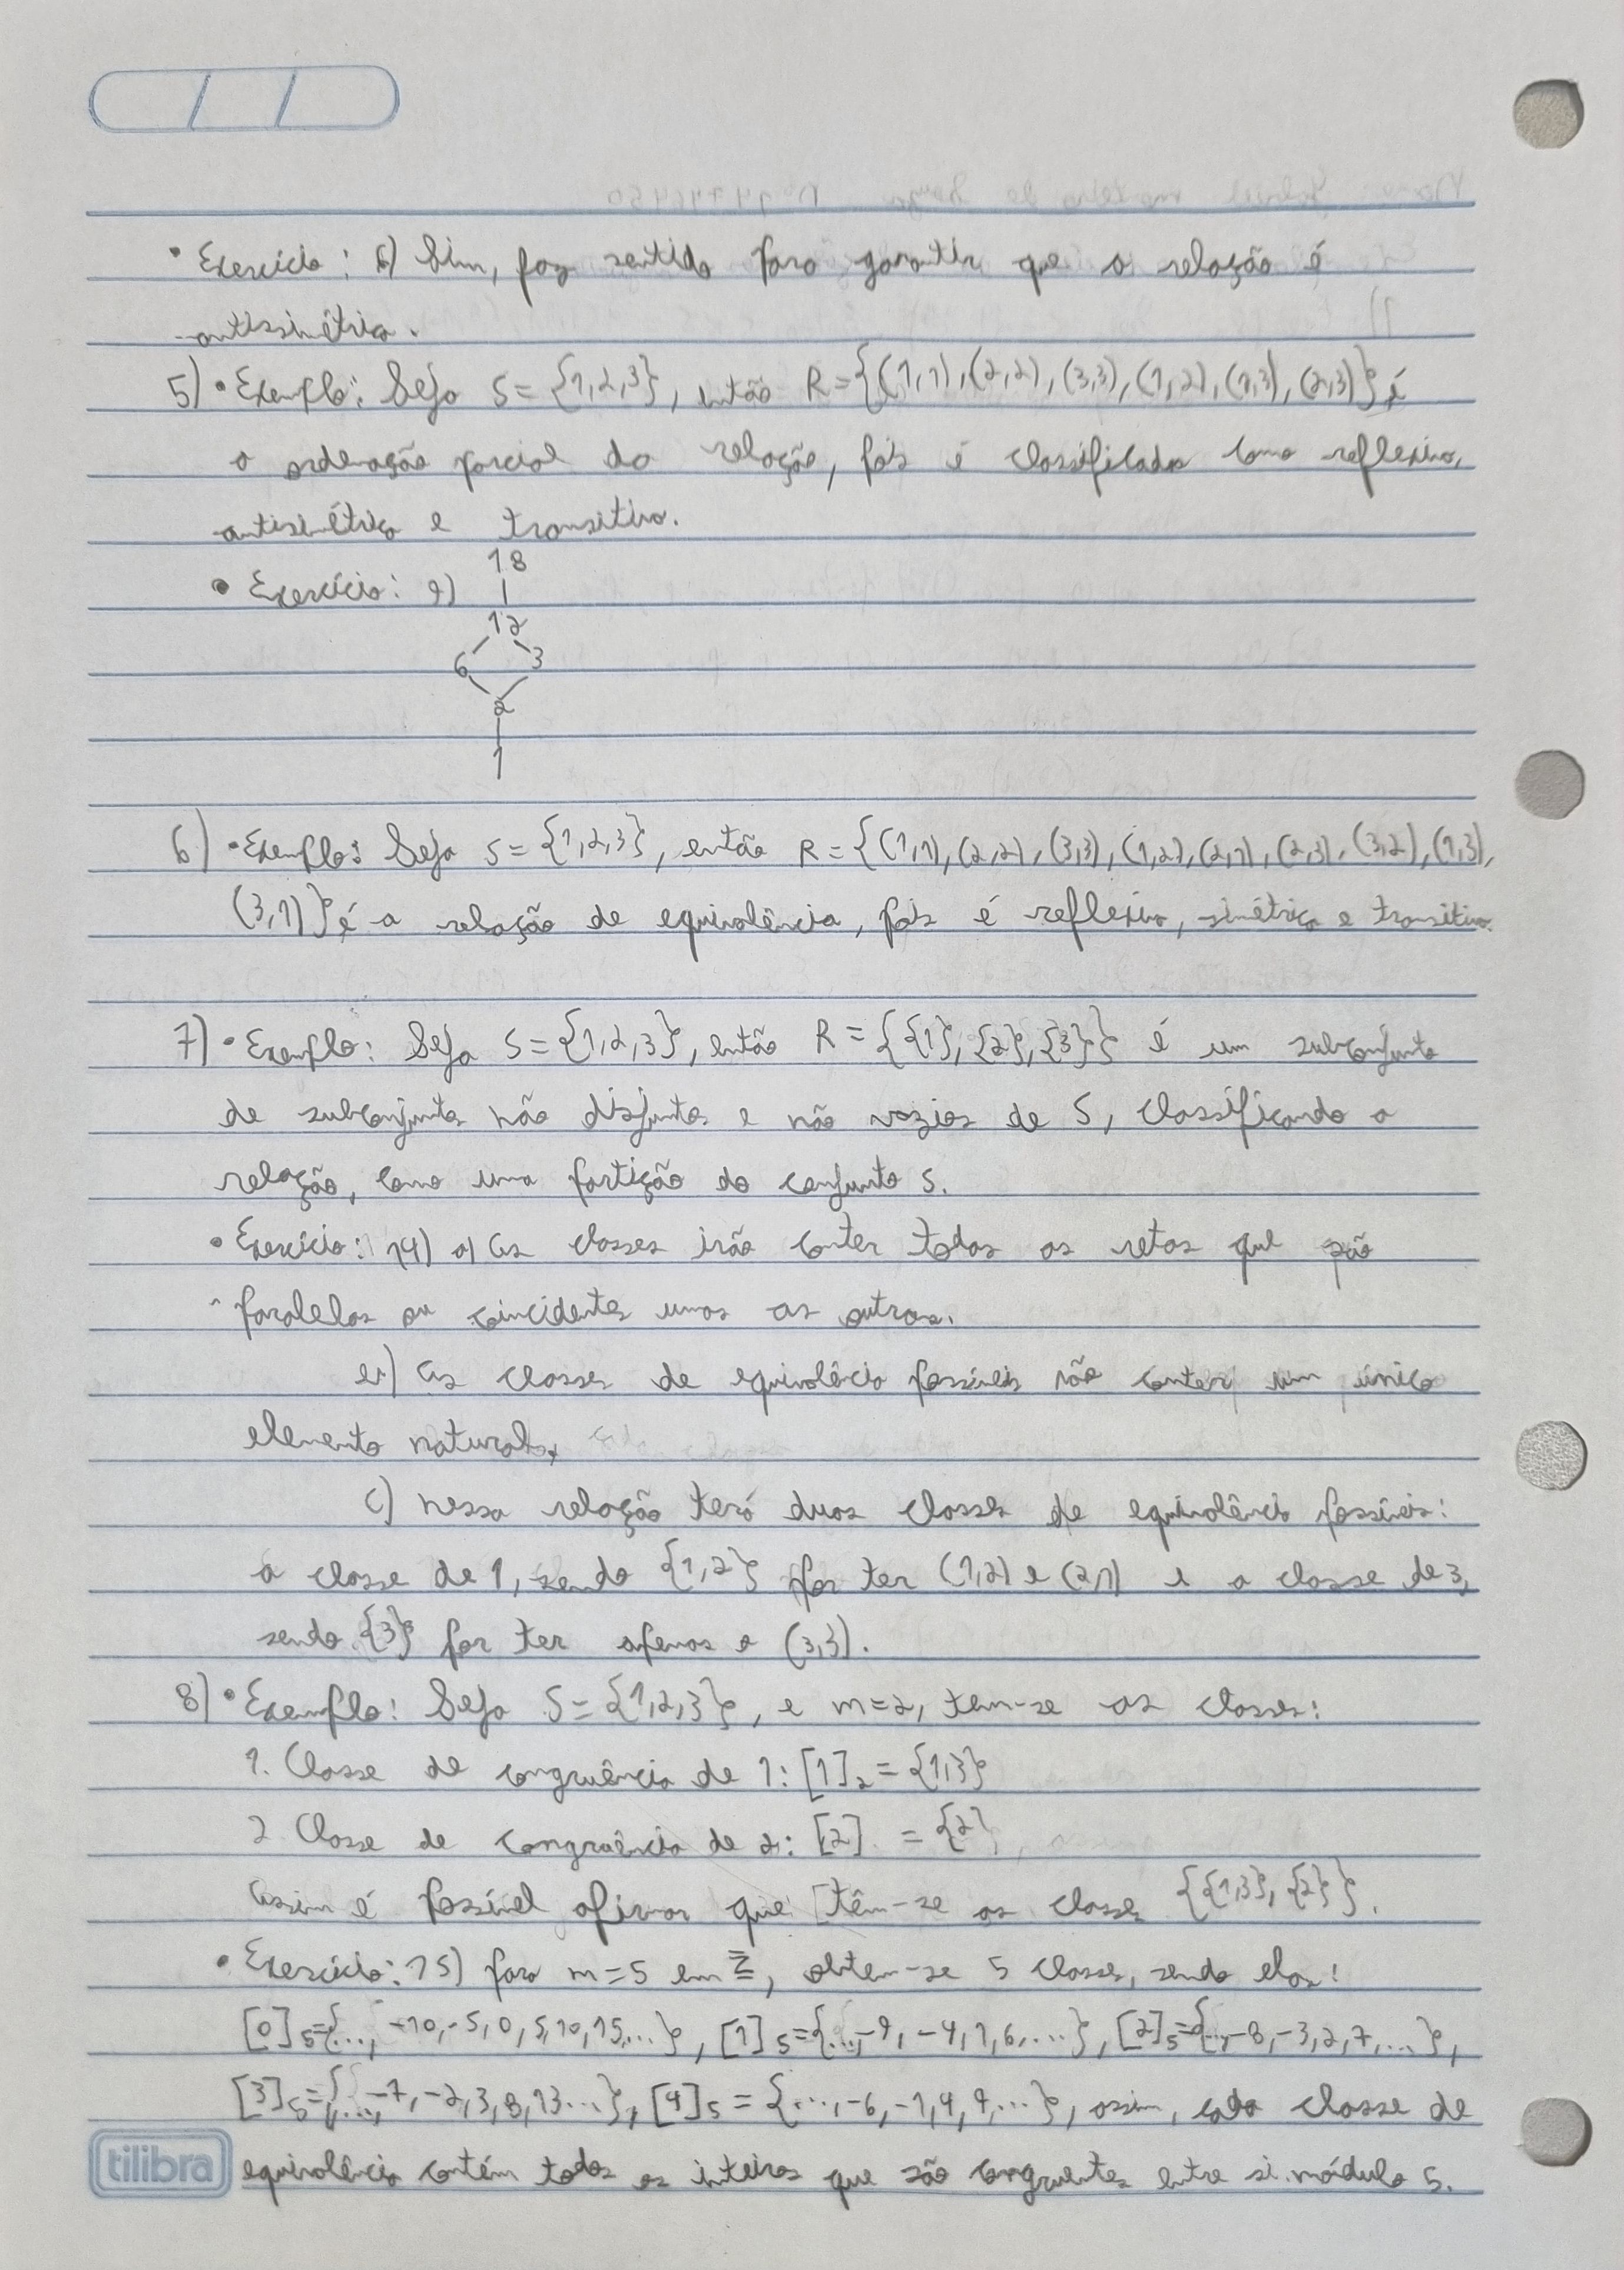 • Exercício: 6) Sim, faz sentido para garantir que a relação é
antissimétrica.
5) • Exemplo: Seja S={1,2,3}, então R={(1,1),(2,2),(3,3),(1,2),(1,3),(2,3)} é
a ordenação parcial da relação, pois é classificada como reflexiva,
antisimétrica e transitiva.
18
• Exercício: 9)
12
6 3
2
1
6) • Exemplo: Seja S={1,2,3}, então R={(1,1),(2,2),(3,3),(1,2),(2,1),(2,3),(3,2),(1,3),
(3,1)} é a relação de equivalência, pois é reflexiva, simétrica e transitiva.
7) • Exemplo: Seja S={1,2,3}, então R={{1},{2},{3}} é um subconjunto
de subconjuntos não disjuntos e não vazios de S, classificando a
relação, como uma partição do conjunto S.
• Exercício: 14) a) As classes irão conter todas as retas que são
paralelas ou coincidentes umas as outras.
b) As classes de equivalência possíveis vão conter um único
elemento natural.
c) Nessa relação terá duas classes de equivalência possíveis:
a classe de 1, sendo {1,2} por ter (1,2) e (2,1) e a classe de 3,
sendo {3} por ter apenas o (3,3).
8) • Exemplo: Seja S={1,2,3}, e m=2, tem-se as classes:
1. Classe de congruência de 1: [1]₂={1,3}
2. Classe de congruência de 2: [2] = {2}
Assim é possível afirmar que têm-se as classes {{1,3},{2}}.
• Exercício: 15) Para m=5 em Z, obtem-se 5 classes, sendo elas:
[0]₅={..., -10,-5,0,5,10,15,...}, [1]₅={...,-9,-4,1,6,...}, [2]₅={...,-8,-3,2,7,...},
[3]₅={...,-7,-2,3,8,13...}, [4]₅={...,-6,-1,4,9,...}, assim, cada classe de
equivalência contém todos os inteiros que são congruentes entre si módulo 5.
tilibra